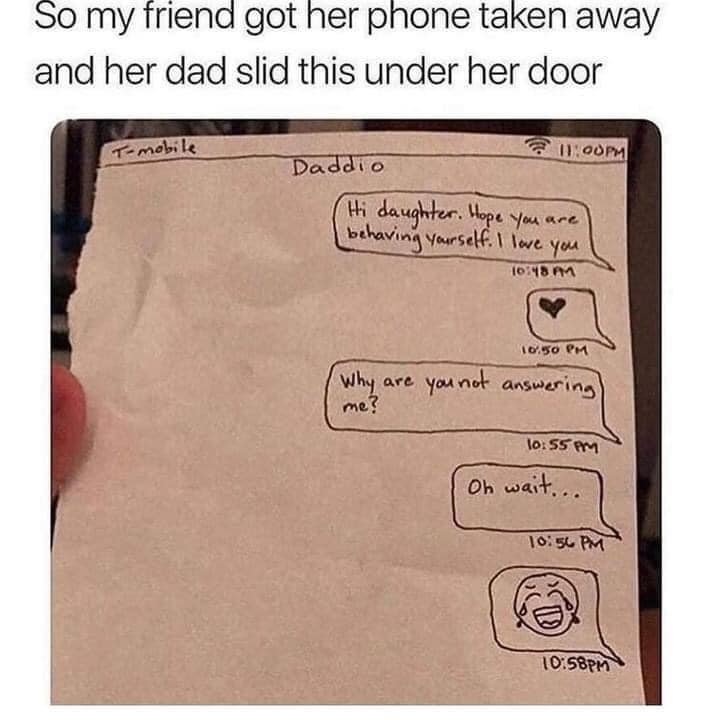 So my friend got her phone taken away
and her dad slid this under her door
T-mobile 11:00PM
Daddio
Hi daughter. Hope you are
behaving yourself. I love you
10:48 PM
10:50 PM
Why are you not answering
me?
10:55 PM
Oh wait...
10:56 PM
10:58PM